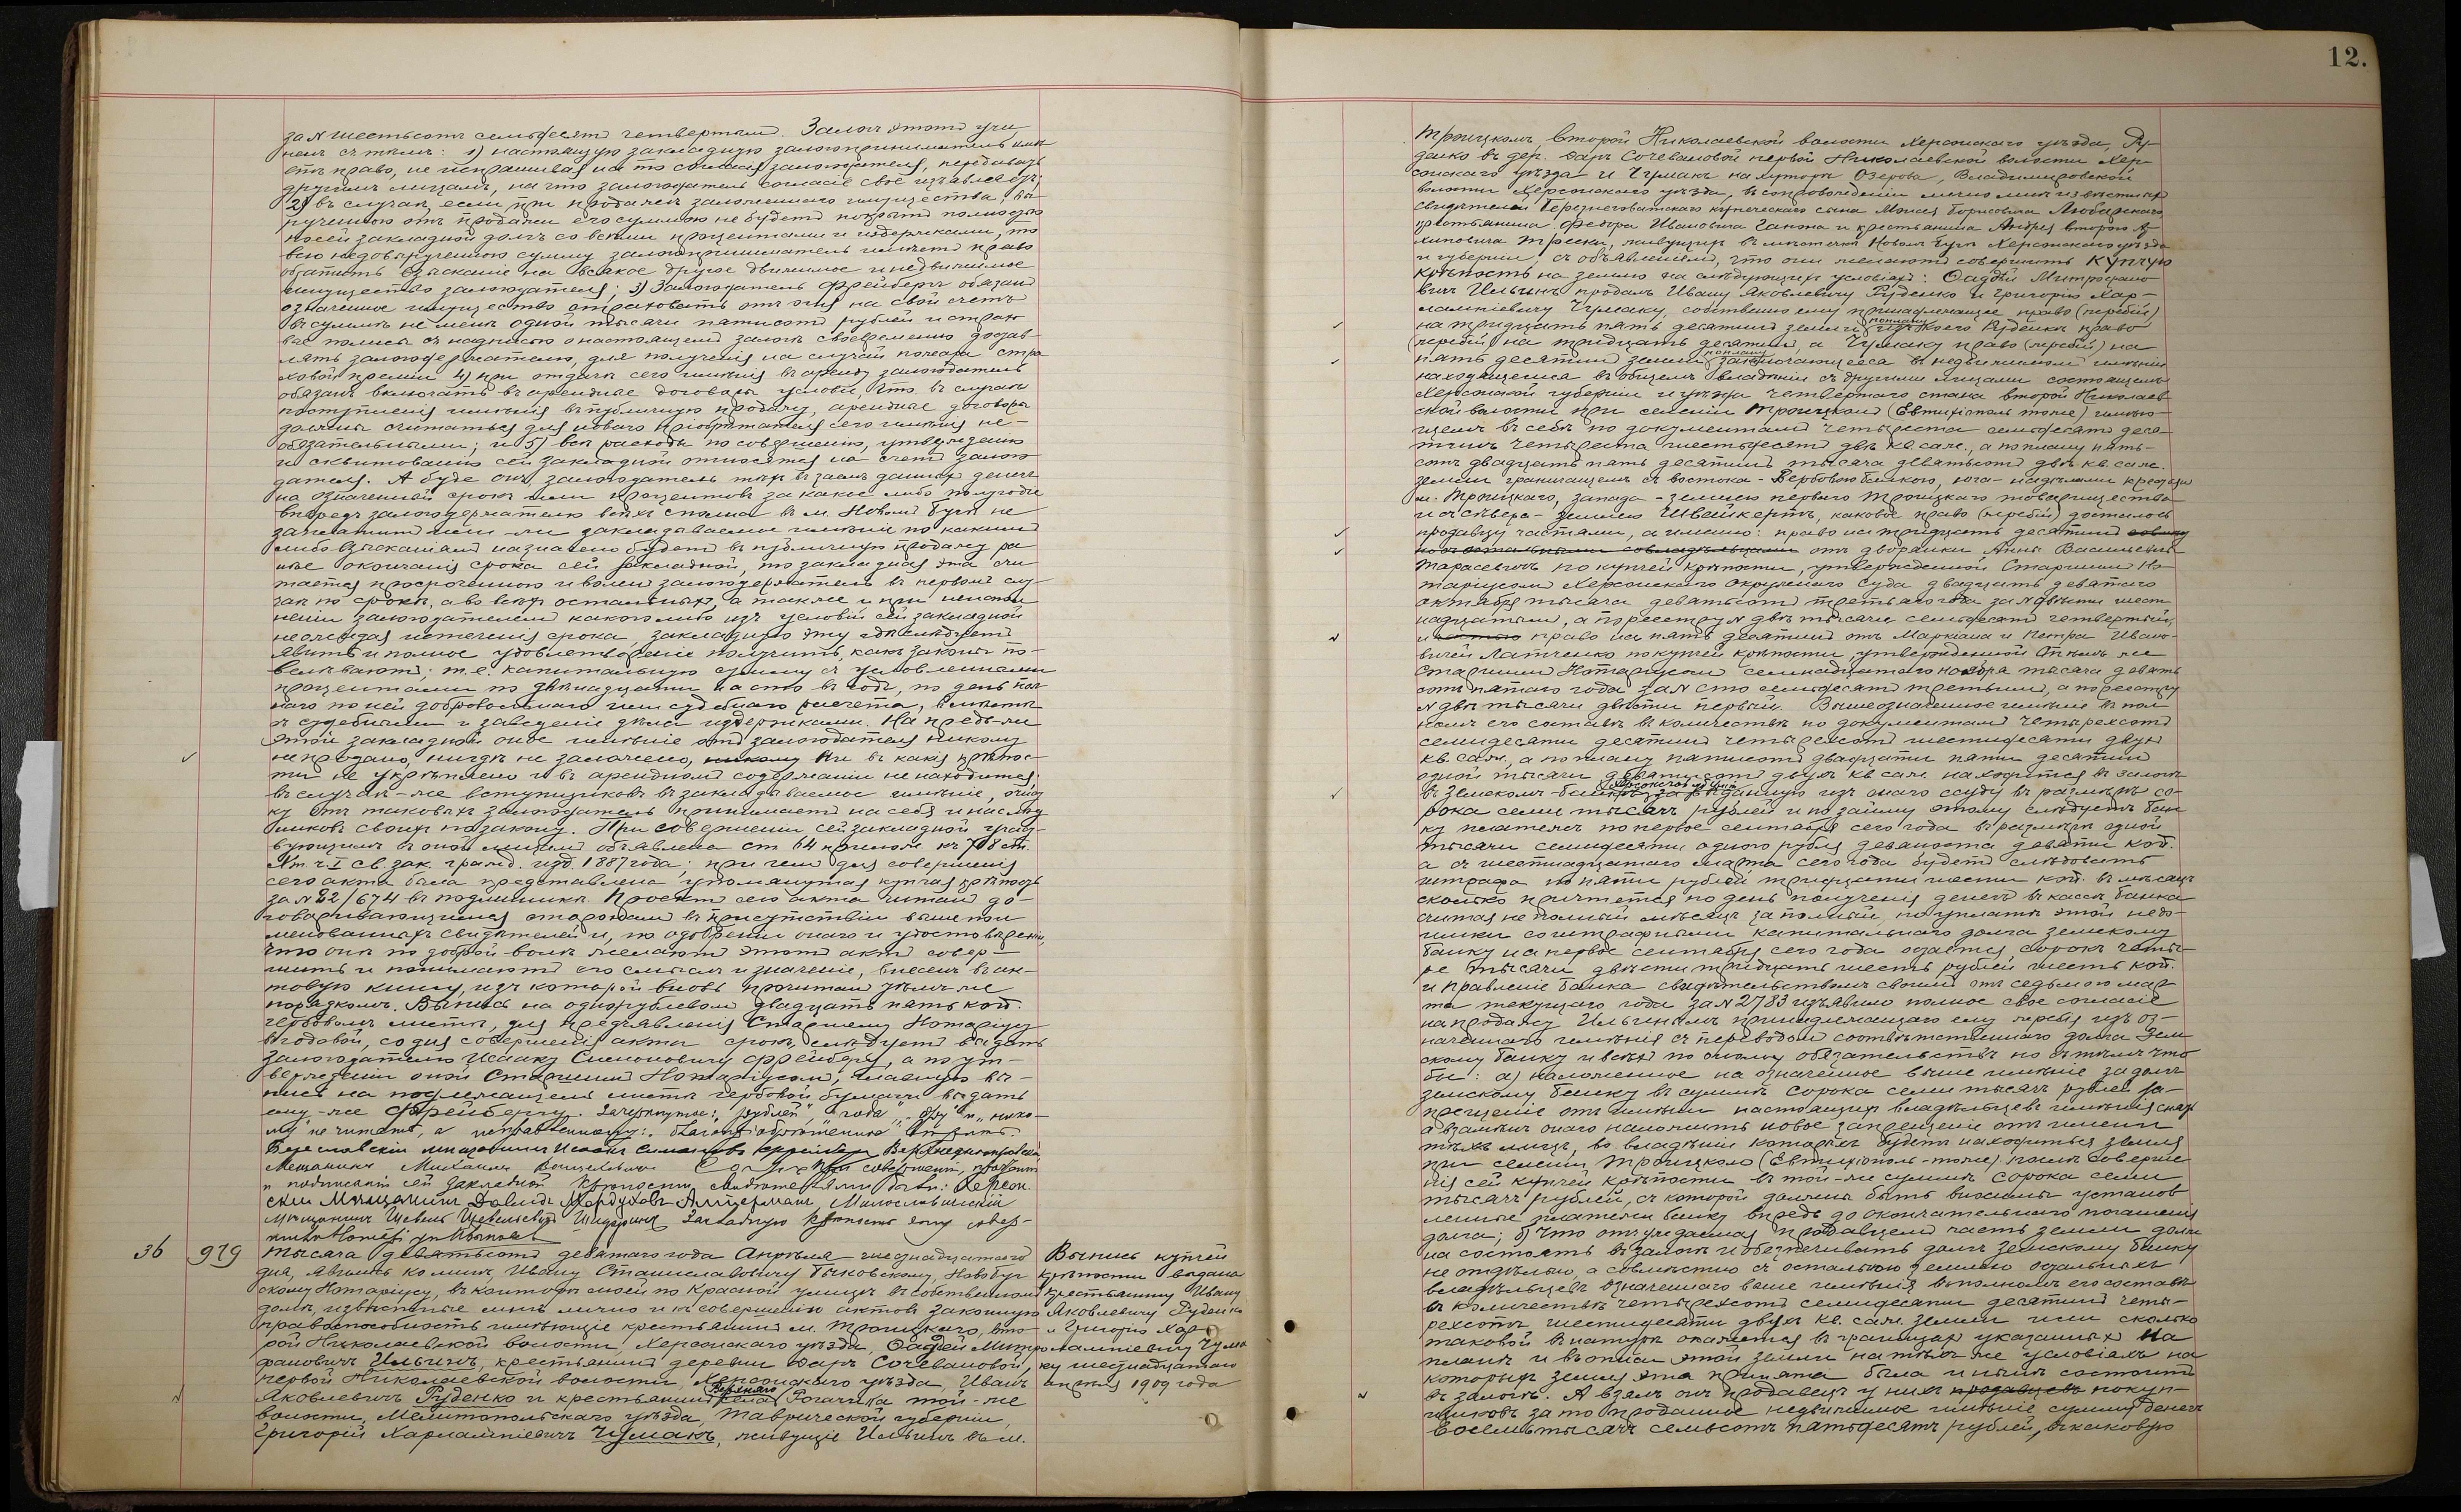 за N шестьсотъ семьдесятъ четвертымъ. Залогъ этотъ учи
ненъ съ тѣмъ: 1) настоящую закладную залогоприниматель имѣ
етъ право, не испрашивая на то согласія залогодателя, передавать
другимъ лицамъ, на что залогодатель согласіе свое изъявляетъ;
2) въ случаѣ, если при продажѣ заложеннаго имущества, вы
рученною отъ продажи его суммою не будетъ покрытъ полностью
по сей закладной долгъ со всѣми процентами и издержками, то
всю недовырученную сумму залогоприниматель имѣетъ право
обратить взысканіе на всякое другое движимое и недвижимое
имущество залогодателя; 3) Залогодатель Фрейбергъ обязанъ
означенное имущество страховать отъ огня на свой счетъ
въ суммѣ не менѣе одной тысячи пятисотъ рублей и страхо
вые полисы съ надписью о настоящемъ залогѣ своевременно достав-
лять залогодержателю, для полученія на случай пожара стра
ховой преміи 4) при отдачѣ сего имѣнія въ аренду залогодатель
обязанъ включать въ арендные договоры условіе, что въ случаѣ
поступленія имѣнія въ публичную продажу, арендные договоры
должны считаться для новаго пріобрѣтателя сего имѣнія не-
обязательными; и 5) всѣ расходы по совершенію, утвержденію
и сквитованію сей закладной относятся на счетъ залого
дателя. А буде онъ, залогодатель тѣхъ взаемъ данныхъ денегъ
на означенный срокъ или процентовъ за какое либо полугодіе
впередъ залогодержателю всѣхъ сполна въ м. Новомъ Бугѣ не
заплатитъ или-ли закладываемое имѣніе по какимъ
либо взысканіямъ назначено будетъ въ публичную продажу ра
нѣе окончанія срока сей закладной, то закладная эта счи
тается просроченною и воленъ залогодержатель въ первомъ слу-
чаѣ по срокѣ, а во всѣхъ остальныхъ, а также и при неиспол
неніи залогодателемъ какого либо изъ условій сей закладной
не ожидая истеченія срока, закладную эту гдѣ слѣдуетъ
явить и полное удовлетвореніе получить, какъ законы по-
велѣваютъ; т.е. капитальную сумму съ условленными
процентами по двѣнадцати на сто въ годъ, по день пол
наго по ней добровольнаго или судебнаго расчета, вмѣстѣ
съ судебными и заведеніе дѣла издержками. На предъ-же
этой закладной оное имѣніе отъ залогодателя никому
не продано, нигдѣ не заложено, никому ни въ какія крѣпос-
ти не укрѣплено и въ арендномъ содержаніи не находится;
въ случаѣ-же вступщиковъ въ закладываемое имѣніе, очист
ку отъ таковыхъ залогодатель принимаетъ на себя и наслѣд
никовъ своихъ по закону. При совершеніи сей закладной участ-
вующимъ въ оной лицамъ объявлена ст. 64 прилож. къ 708 ст.
Хт. ч. I св. зак. гражд. изд. 1887 года; при чемъ для совершенія
сего акта была представлена упомянутая купчая крѣпость
за N 22/674 въ подлинникѣ. Проектъ сего акта читанъ до-
говаривающимся сторонамъ въ присутствіи выше поиме
менованныхъ свидѣтелей и, по одобреніи онаго и удостовѣреніи,
что они по доброй волѣ желаютъ этотъ актъ совер-
шить и понимаютъ его смыслъ и значеніе, внесенъ въ ак-
товую книгу, изъ которой вновь прочитанъ тѣмъ-же
порядкомъ. Выпись на однорублевомъ двадцать пять коп.
гербовомъ листѣ, для предъявленія Старшему Нотаріусу
въ годовой, со дня совершенія акта срокъ, слѣдуетъ выдать
залогодателю Исааку Симоновичу Фрейбергу, а по ут-
вержденіи оной Старшимъ Нотаріусомъ, главную вы-
пись на подлежащемъ листѣ гербовой бумаги выдать
ему-же Фрейбергу. Зачеркнутое: "рублей", "года", "фру" и "нико-
му" не читать, а исправленному: вѣрить.
Береславскій мѣщанинъ Исаакъ Симоновъ Фрейбергъ Верхнеднѣпровскій
Мещанинъ Михаилъ При совершеніи, прочтеніи
и подписаніи сей закладной крѣпости свидѣтелями были: Херсон.
скій Мѣщанинъ Давидъ Мордуховъ Алтерманъ Милославицкій
мѣщанинъ Шевель Шевелевичъ Закладную крѣпость эту совер-
шилъ Нотаріусъ
36 979 Тысяча девятьсотъ девятаго года Апрѣля шестнадцатаго
дня, явились ко мнѣ, Ивану Станиславовичу Бычковскому, Новобуг
скому Нотаріусу, въ контору мою по Красной улицѣ въ собственномъ
домѣ, извѣстные мнѣ лично и къ совершенію актовъ законную
правоспособность имѣющіе крестьянинъ м. Троицкаго, вто-
рой Николаевской волости, Херсонскаго уѣзда, Фадѣй Митро
фановичъ Ильинъ, крестьянинъ деревни Даръ Сочевановой,
первой Николаевской волости, Херсонскаго уѣзда, Иванъ
Яковлевичъ Руденко и крестьянинъ села Верхняго Рогачика той-же
волости, Мелитопольскаго уѣзда, Таврической губерніи,
Григорій Харлампіевичъ Чумакъ, живущіе Ильинъ въ м.
Выпись купчей
крѣпости выдана
крестьянину Ивану
Яковлевичу Руденко
и Григорію Хар
лампіевичу Чума
ку шестнадцатаго
апрѣля 1909 года
12.
Троицкомъ, второй Николаевской волости Херсонскаго уѣзда, Ру-
денко въ дер. Даръ Сочевановой первой Николаевской волости Хер-
сонскаго уѣзда и Чумакъ на хуторѣ Озерова, Владимировской
волости Херсонскаго уѣзда, въ сопровожденіи лично мнѣ извѣстныхъ
свидѣтелей Березнеговатскаго купеческаго сына Моисея Борисовича Любарскаго,
крестьянина Федора Ивановича Ганжа и крестьянина Андрея второго
Трески, живущихъ въ мѣстечкѣ Новомъ Бугѣ Херсонскаго уѣзда
и губерніи, съ объявленіемъ, что они желаютъ совершить купчую
крѣпость на землю на слѣдующихъ условіяхъ: Фадѣй Митрофано-
вичъ Ильинъ продалъ Ивану Яковлевичу Руденко и Григорію Хар-
лампіевичу Чумаку, собственно ему принадлежащее право (жребій)
на тридцать пять десятинъ земли по плану изъ коего Руденкѣ право
(жребій) на тридцать десятинъ, а Чумаку право (жребій) на
пять десятинъ земли по плану заключающееся въ недвижимомъ имѣніи
находящемся въ общемъ владѣніи съ другими лицами состоящемъ
Херсонской губерніи и уѣзда четвертаго стана второй Николаев-
ской волости при селеніи Троицкомъ (Евтихіополь тоже) имѣю-
щемъ въ себѣ по документамъ четыреста семьдесятъ деся-
тинъ четыреста шестьдесятъ двѣ кв. саж., а по плану пять-
сотъ двадцать пять десятинъ тысяча девятьсотъ двѣ кв. саж.
земли граничащемъ съ востока - Вербовою балкою, юга - надѣлами крестьянъ
м. Троицкаго, запада - землею перваго Троицкаго товарищества
и съ сѣвера - землею Швейкертъ, каковое право (жребій) досталось
продавцу частями, а именно: право на тридцать десятинъ
отъ дворянки Анны Васильевны
Тарасевичъ по купчей крѣпости, утвержденной Старшимъ Но-
таріусомъ Херсонскаго Окружнаго Суда двадцать девятаго
октября тысяча девятьсотъ третьяго года за N двѣсти шест
надцатымъ, а по реестру N двѣ тысячи семьдесятъ четвертый;
и право на пять десятинъ отъ Маркіана и Петра Ивано-
вичей Латченко по купчей крѣпости утвержденной тѣмъ же
Старшимъ Нотаріусомъ семнадцатаго ноября тысяча девять
сотъ пятаго года за N сто семьдесятъ третьимъ, а по реестру
N двѣ тысячи двѣсти первый. Вышеозначенное имѣніе въ пол
номъ его составѣ въ количествѣ по документамъ четырехсотъ
семидесяти десятинъ четырехсотъ шестидесяти двухъ
кв. саж., а по плану пятисотъ двадцати пяти десятинъ
одной тысячи девятисотъ двухъ кв. саж. находится въ залогѣ
въ Земскомъ банкѣ Херсонской губ. за выданную изъ онаго ссуду въ размѣрѣ со-
рока семи тысячъ рублей и по займу этому слѣдуетъ бан
ку платежъ по первое сентября сего года въ размѣрѣ одной
тысячи семидесяти одного рубля девяноста девяти коп.
а съ шестнадцатаго марта сего года будетъ слѣдовать
штрафа по пяти рублей тридцати шести коп. въ мѣсяцъ
сколько причтется по день полученія денегъ въ кассѣ банка
считая не полный мѣсяцъ за полный, по уплатѣ этой недо-
имки со штрафными капитальнаго долга земскому
банку на первое сентября сего года остается, сорокъ четы-
ре тысячи двѣсти тридцать шесть рублей шесть коп.
и правленіе банка свидѣтельствомъ своимъ отъ седьмого мар
та текущаго года за N 2783 изъявило полное свое согласіе
на продажу Ильинымъ принадлежащаго ему жребія изъ оз-
наченнаго имѣнія съ переводомъ соотвѣтственнаго долга Зем
скому банку и всѣхъ по оному обязательствъ но съ тѣмъ что
бы: а) наложенное на означенное выше имѣніе за долгъ
земскому банку въ суммѣ сорока семи тысячъ рублей за-
прещеніе отъ имени настоящихъ владѣльцевъ имѣнія снять
а взамѣнъ онаго наложить новое запрещеніе отъ имени
тѣхъ лицъ, во владѣніи которыхъ будетъ находиться земля
при селеніи Троицкомъ (Евтихіополь-тоже) послѣ соверше
нія сей купчей крѣпости въ той-же суммѣ сорока семи
тысячъ рублей, съ которой должны быть вносимы установ
ленные платежи банку впредь до окончательнаго погашенія
долга; б) что отчуждаемая продавцемъ часть земли долж
на состоять въ залогѣ и обезпечивать долгъ Земскому банку
не отдѣльно, а совмѣстно съ остальною землею остальныхъ
владѣльцевъ означеннаго выше имѣнія въ полномъ его составѣ
въ количествѣ четырехсотъ семидесяти десятинъ четы-
рехсотъ шестидесяти двухъ кв. саж. земли или сколько
таковой въ натурѣ окажется въ границахъ указанныхъ на
планѣ и въ описи этой земли на тѣхъ же условіяхъ на
которыхъ земля эта принята была и нынѣ состоитъ
въ залогѣ. А взялъ онъ продавецъ у нихъ продавцевъ покуп-
щиковъ за то проданное недвижимое имѣніе сумму денегъ
восемь тысячъ семьсотъ пятьдесятъ рублей, въ каковую